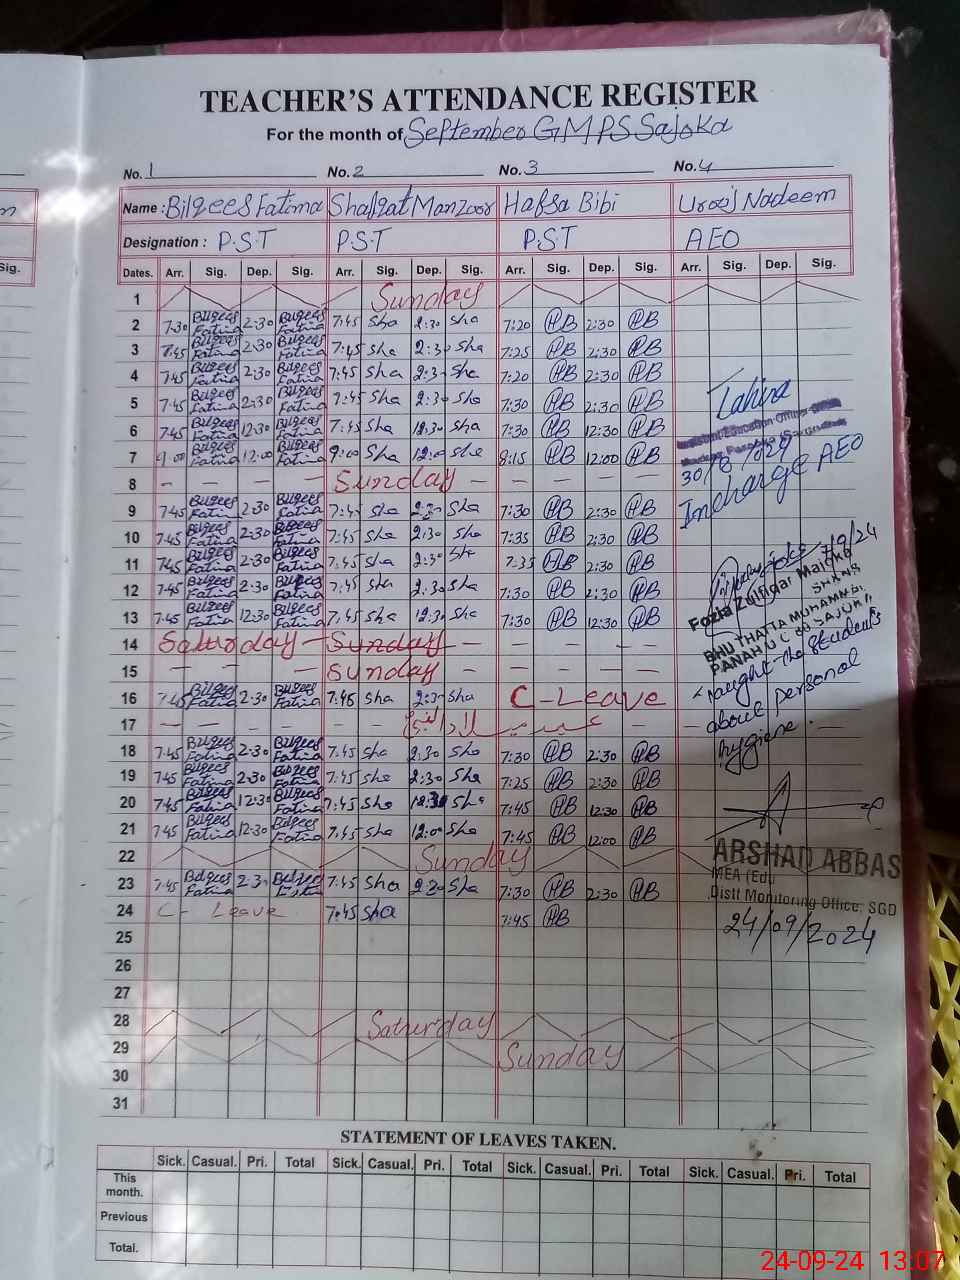 TEACHER'S ATTENDANCE REGISTER
For the month of September GMPS Sajoka
No. 1 No. 2 No. 3 No. 4
Name : Bilqees Fatima Shafqat Manzoor Hafsa Bibi Urooj Nadeem
Designation : P.S.T P.S.T P.S.T AEO
Dates. Arr. Sig. Dep. Sig. Arr. Sig. Dep. Sig. Arr. Sig. Dep. Sig. Arr. Sig. Dep. Sig.
1 Sunday
2 7:30 Bilqees Fatima 2:30 Bilqees Fatima 7:45 Sha 2:30 Sha 7:20 HB 2:30 HB
3 7:45 Bilqees Fatima 2:30 Bilqees Fatima 7:45 Sha 2:30 Sha 7:25 HB 2:30 HB
4 7:45 Bilqees Fatima 2:30 Bilqees Fatima 7:45 Sha 2:3 Sha 7:20 HB 2:30 HB
5 7:45 Bilqees Fatima 2:30 Bilqees Fatima 7:45 Sha 2:30 Sha 7:30 HB 2:30 HB
6 7:45 Bilqees Fatima 12:30 Bilqees Fatima 7:45 Sha 12:30 Sha 7:30 HB 12:30 HB
7 9:00 Bilqees Fatima 12:00 Bilqees Fatima 9:00 Sha 12:00 Sha 8:15 HB 12:00 HB
8 — — — — Sunday — — — — —
9 7:45 Bilqees Fatima 2:30 Bilqees Fatima 7:45 Sha 2:30 Sha 7:30 HB 2:30 HB
10 7:45 Bilqees Fatima 2:30 Bilqees Fatima 7:45 Sha 2:30 Sha 7:35 HB 2:30 HB
11 7:45 Bilqees Fatima 2:30 Bilqees Fatima 7:45 Sha 2:30 Sha 7:35 HB 2:30 HB
12 7:45 Bilqees Fatima 2:30 Bilqees Fatima 7:45 Sha 2:30 Sha 7:30 HB 2:30 HB
13 7:45 Bilqees Fatima 12:30 Bilqees Fatima 7:45 Sha 12:30 Sha 7:30 HB 12:30 HB
14 Saturday — Sunday — — — — —
15 — — — — Sunday — — — — —
16 7:45 Bilqees Fatima 2:30 Bilqees Fatima 7:45 Sha 2:3 Sha C-Leave
17 — — — — — عید میلادالنبی — —
18 7:45 Bilqees Fatima 2:30 Bilqees Fatima 7:45 Sha 2:30 Sha 7:30 HB 2:30 HB
19 7:45 Bilqees Fatima 2:30 Bilqees Fatima 7:45 Sha 2:30 Sha 7:25 HB 2:30 HB
20 7:45 Bilqees Fatima 12:30 Bilqees Fatima 7:45 Sha 12:30 Sha 7:45 HB 12:30 HB
21 7:45 Bilqees Fatima 12:30 Bilqees Fatima 7:45 Sha 12:00 Sha 7:45 HB 12:00 HB
22 Sunday
23 7:45 Bilqees Fatima 2:3 Bilqees Fatima 7:45 Sha 2:30 Sha 7:30 HB 2:30 HB
24 C- Leave 7:45 Sha 7:45 HB
25
26
27
28 Saturday
29 Sunday
30
31
Tahira
Assistant Education Officer
Incharge AEO
/9/24
Fozia Zulfiqar
BHU THATTA MUHAMMAD
PANAH
taught the students
about personal
hygiene.
ARSHAD ABBAS
MEA (Edu
Distt Monitoring Office, SGD
24/09/2024
STATEMENT OF LEAVES TAKEN.
Sick. Casual. Pri. Total Sick. Casual. Pri. Total Sick. Casual. Pri. Total Sick. Casual. Pri. Total
This month.
Previous
Total.
24-09-24 13:07
Sig.